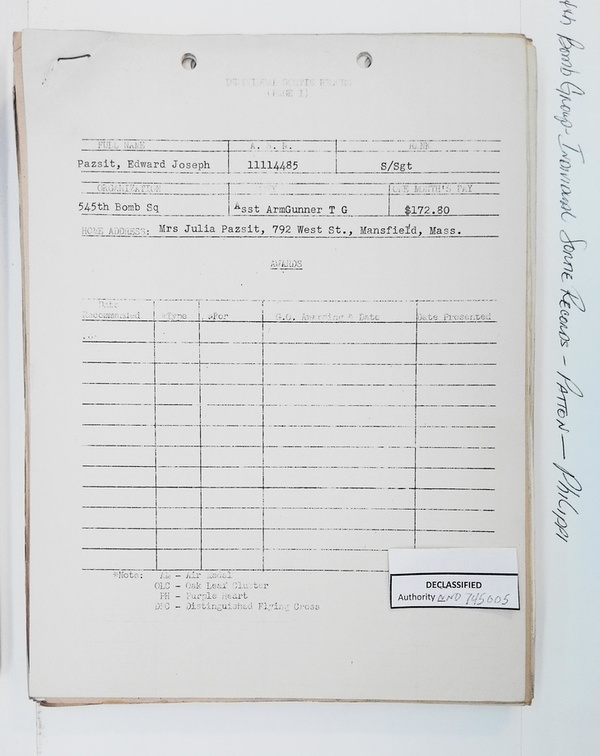 INDIVIDUAL SORTIE RECORD
(PAGE I)
FULL NAME A. S. N. RANK
Pazsit, Edward Joseph 11114485 S/Sgt
ORGANIZATION ONE MONTH'S PAY
545th Bomb Sq Asst ArmGunner T G $172.80
HOME ADDRESS: Mrs Julia Pazsit, 792 West St., Mansfield, Mass.
AWARDS
Date
Recommended *Type *For G.O. Awarding & Date Date Presented
*Note: AM - Air Medal
OLC - Oak Leaf Cluster
PH - Purple Heart
DFC - Distinguished Flying Cross
DECLASSIFIED
Authority NND 745005
4th Bomb Group - Individual Sortie Records - PATTON - Philippi